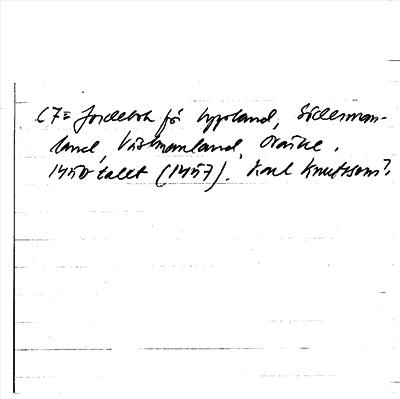 C7= Jordebok för Uppland, Söderman-
land, Västmanland, Närke.
1450-talet (1457). Karl Knutssons?